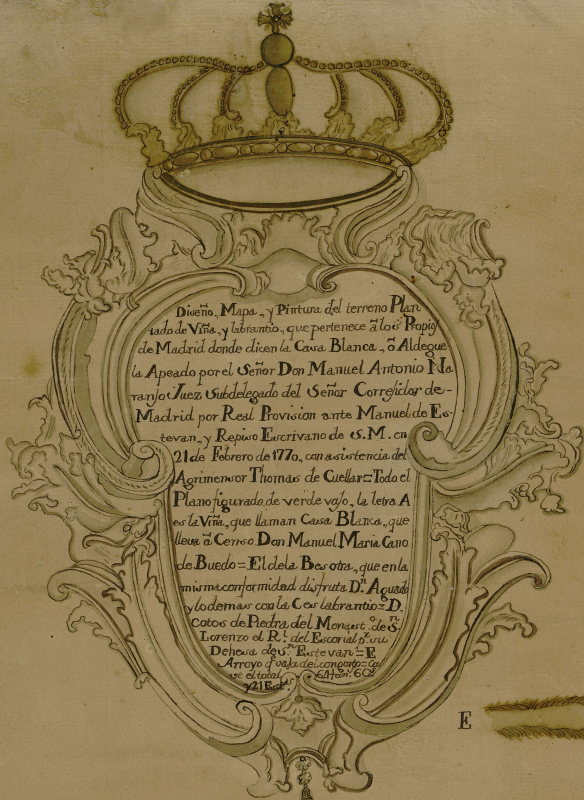 Diseño, Mapa, y Pintura del terreno Plan
tado de Viña, y labrantio, que pertenece à los Propiõ
de Madrid donde dicen la Casa Blanca, õ Aldegue
la Apeado por el Señor Don Manuel Antonio Na
ranjo Juez Subdelegado del Señor Corregidor de-
Madrid por Real Provision ante Manuel de Es-
tevan, y Repiso Escrivano de S. M. en
21 de Febrero de 1770, con asistencia del
Agrimensor Thomas de Cuellar= Todo el
Plano figurado, de verde vajo, la letra A
es la Viña, que llaman Casa Blanca, que
lleva à Censo Don Manuel Maria Cano
de Buedo= El de la B es otra, que en la
misma conformidad disfruta Dn. Aguado
y lo demas con la C es labrantio= D.
Cotos de Piedra del Monastº. de Sn.
Lorenzo el Rl. del Escorial pr. su
Dehesa de Sn. Estevan= E
Arroyo q vaja del
ve el total 60
y 21 Est.
E